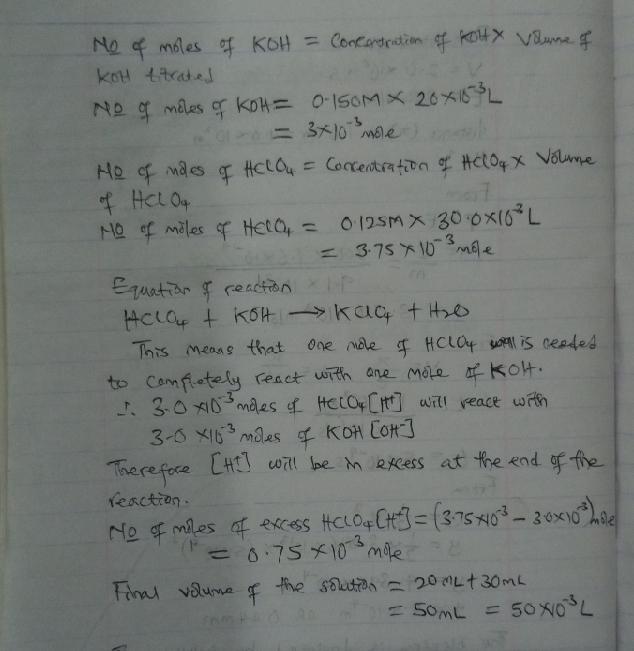 No of moles of KOH = Concentration of KOH x Volume of
KOH titrated
No of moles of KOH = 0.150M x 20x10⁻³L
= 3x10⁻³ mole
No of moles of HClO4 = Concentration of HClO4 x Volume
of HClO4
No of moles of HClO4 = 0.125M x 30.0x10⁻³L
= 3.75 x 10⁻³ mole
Equation of reaction
HClO4 + KOH → KClO4 + H2O
This means that one mole of HClO4 is needed
to completely react with one mole of KOH.
∴ 3.0 x10⁻³ moles of HClO4 [H⁺] will react with
3.0 x10⁻³ moles of KOH [OH⁻]
Therefore [H⁺] will be in excess at the end of the
reaction.
No of moles of excess HClO4 [H⁺] = (3.75x10⁻³ - 3.0x10⁻³) mole
= 0.75 x 10⁻³ mole
Final volume of the solution = 20mL + 30mL
= 50mL = 50x10⁻³L